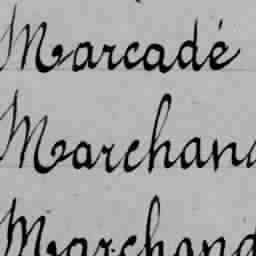 Marcadé
Marchand
Marchand